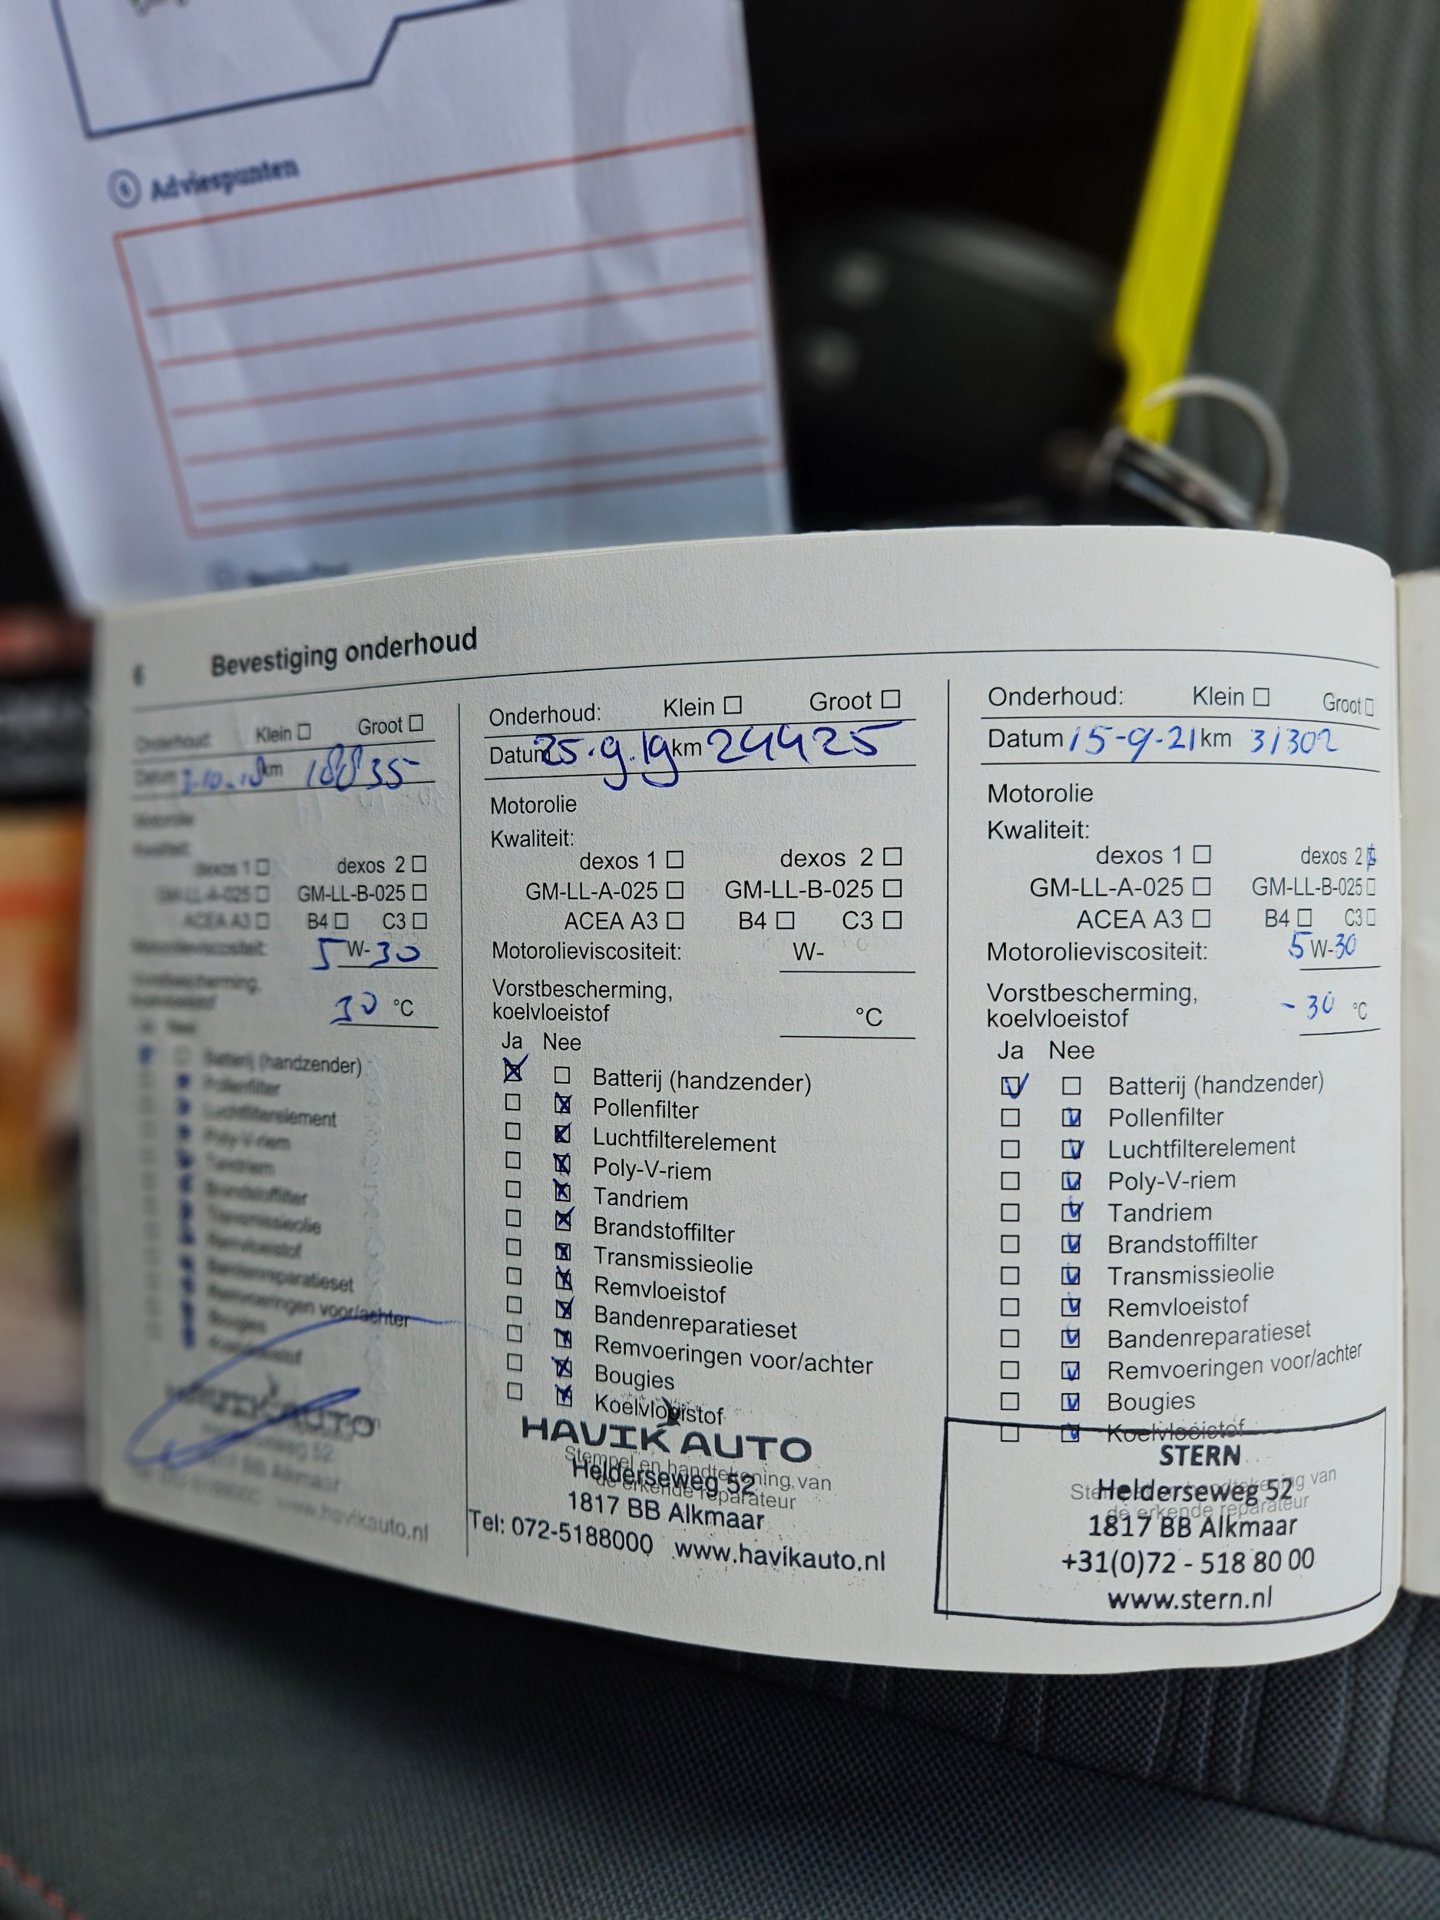 Adviespunten
6 Bevestiging onderhoud
Onderhoud: Klein ☐ Groot ☐
Datum 3-10-18 km 18835
Motorolie
Kwaliteit:
dexos 1 ☐ dexos 2 ☐
GM-LL-A-025 ☐ GM-LL-B-025 ☐
ACEA A3 ☐ B4 ☐ C3 ☐
Motorolieviscositeit: 5 W-30
Vorstbescherming,
koelvloeistof 30 °C
Ja Nee
Batterij (handzender)
Pollenfilter
Luchtfilterelement
Poly-V-riem
Tandriem
Brandstoffilter
Transmissieolie
Remvloeistof
Bandenreparatieset
Remvoeringen voor/achter
Bougies
Koelvloeistof
HAVIK AUTO
Helderseweg 52
1817 BB Alkmaar
Tel: 072-5188000 www.havikauto.nl
Onderhoud: Klein ☐ Groot ☐
Datum 25-9-19 km 24425
Motorolie
Kwaliteit:
dexos 1 ☐ dexos 2 ☐
GM-LL-A-025 ☐ GM-LL-B-025 ☐
ACEA A3 ☐ B4 ☐ C3 ☐
Motorolieviscositeit: W-
Vorstbescherming,
koelvloeistof °C
Ja Nee
Batterij (handzender)
Pollenfilter
Luchtfilterelement
Poly-V-riem
Tandriem
Brandstoffilter
Transmissieolie
Remvloeistof
Bandenreparatieset
Remvoeringen voor/achter
Bougies
Koelvloeistof
HAVIK AUTO
Stempel en handtekening van
Helderseweg 52
de erkende reparateur
1817 BB Alkmaar
Tel: 072-5188000 www.havikauto.nl
Onderhoud: Klein ☐ Groot ☐
Datum 15-9-21 km 31302
Motorolie
Kwaliteit:
dexos 1 ☐ dexos 2
GM-LL-A-025 ☐ GM-LL-B-025 ☐
ACEA A3 ☐ B4 ☐ C3 ☐
Motorolieviscositeit: 5 W-30
Vorstbescherming,
koelvloeistof -30 °C
Ja Nee
Batterij (handzender)
Pollenfilter
Luchtfilterelement
Poly-V-riem
Tandriem
Brandstoffilter
Transmissieolie
Remvloeistof
Bandenreparatieset
Remvoeringen voor/achter
Bougies
Koelvloeistof
STERN
Stempel en handtekening van
Helderseweg 52
de erkende reparateur
1817 BB Alkmaar
+31(0)72 - 518 80 00
www.stern.nl